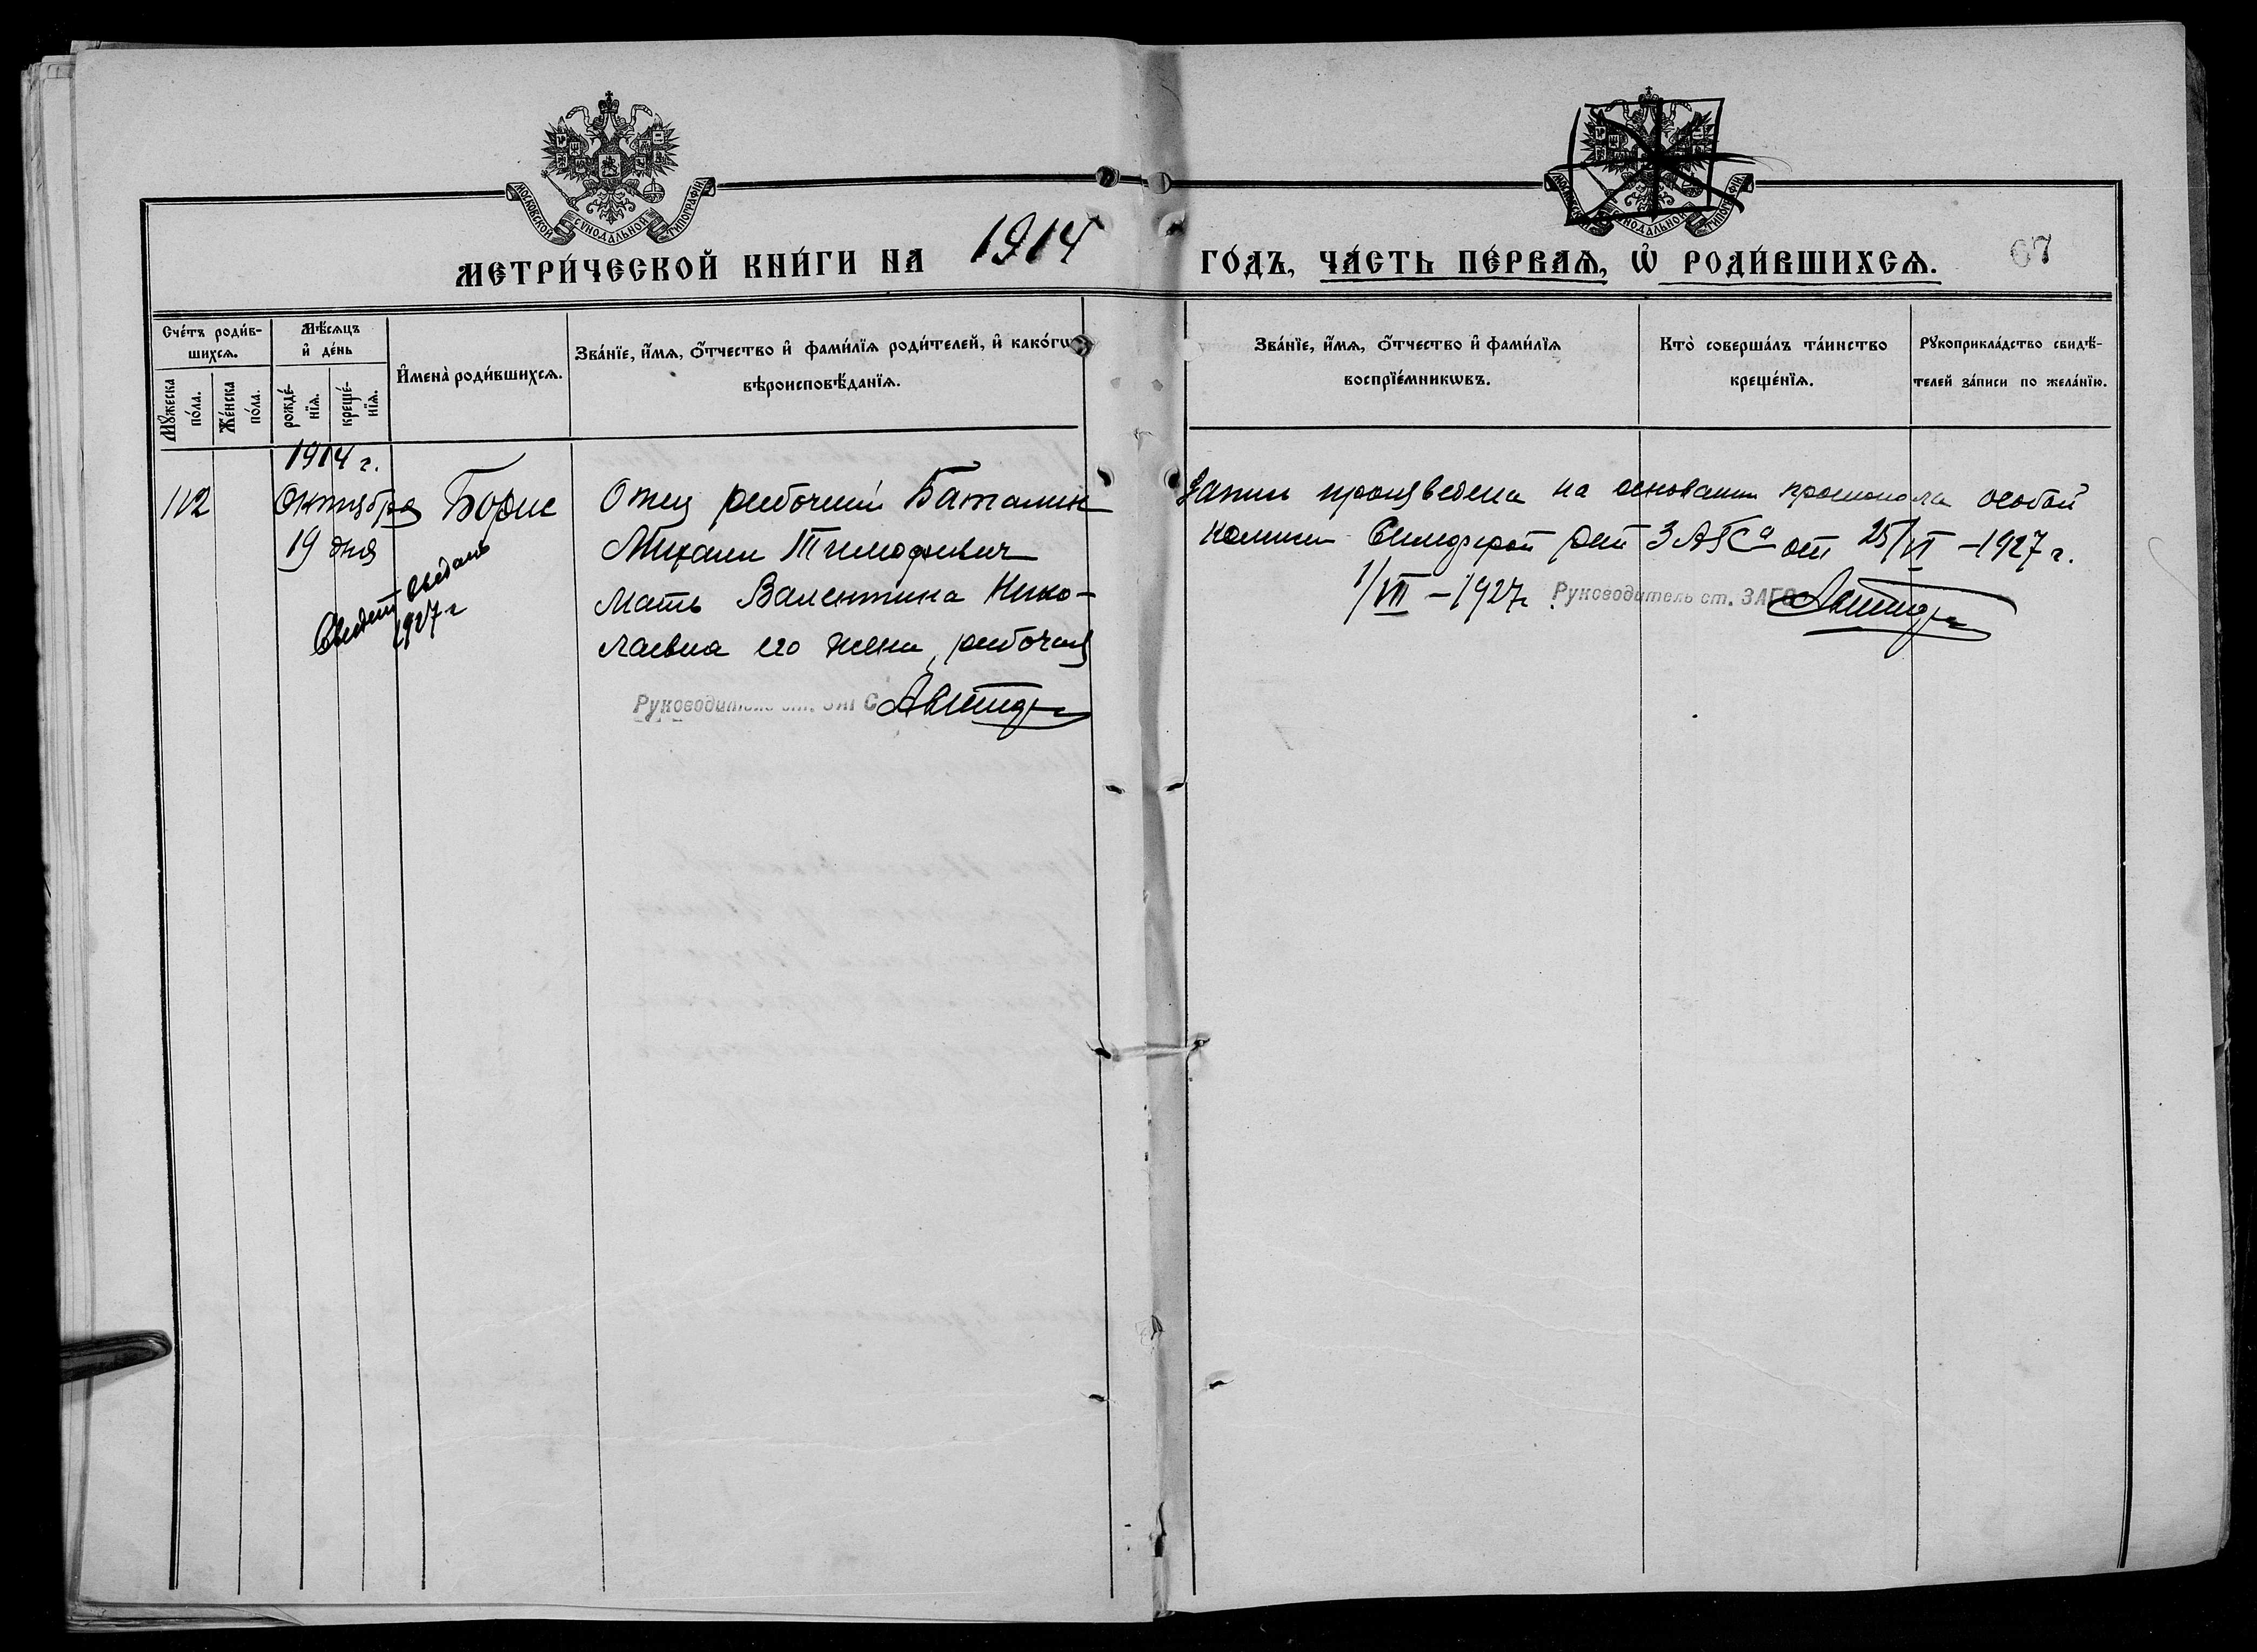 МОСКОВСКОЙ СУНОДАЛЬНОЙ ТИПОГРАФІИ.
МОСКОВСКОЙ СУНОДАЛЬНОЙ ТИПОГРАФІИ.
МЕТРИ́ЧЕСКОЙ КНИ́ГИ НА 1914 ГО́ДЪ, ЧА́СТЬ ПЕ́РВАѦ, Ѡ҆ РОДИ́ВШИХСѦ.
67
Сче́тъ роди́в-
шихсѧ.
Мꙋ́жеска
по́ла.
Же́нска
по́ла.
Мѣ́сѧцъ
и҆ де́нь
рожде́-
нїѧ.
креще́-
нїѧ.
И҆мена̀ роди́вшихсѧ.
Зва́нїе, и҆́мѧ, ѻ҆́тчество и҆ фами́лїѧ роди́телей, и҆ како́гѡ
вѣроисповѣ́данїѧ.
Зва́нїе, и҆́мѧ, ѻ҆́тчество и҆ фами́лїѧ
воспрїе́мникѡвъ.
Кто̀ соверша́лъ та́инство
креще́нїѧ.
Рꙋкоприкла́дство свидѣ́-
телей за́писи по жела́нїю.
1914 г.
112
Октября
19 дня
Борис
1927 г
Отец рабочий Баталин
Михаил Тимофеевич
Мать Валентина Нико-
лаевна его жена, рабочая
Руководитель ст. ЗАГС
Запись произведена на основании протокола особой
комиссии Симфероп рай ЗАГСа от 25/VI -1927 г.
1/VII -1927г. Руководитель ст. ЗАГС